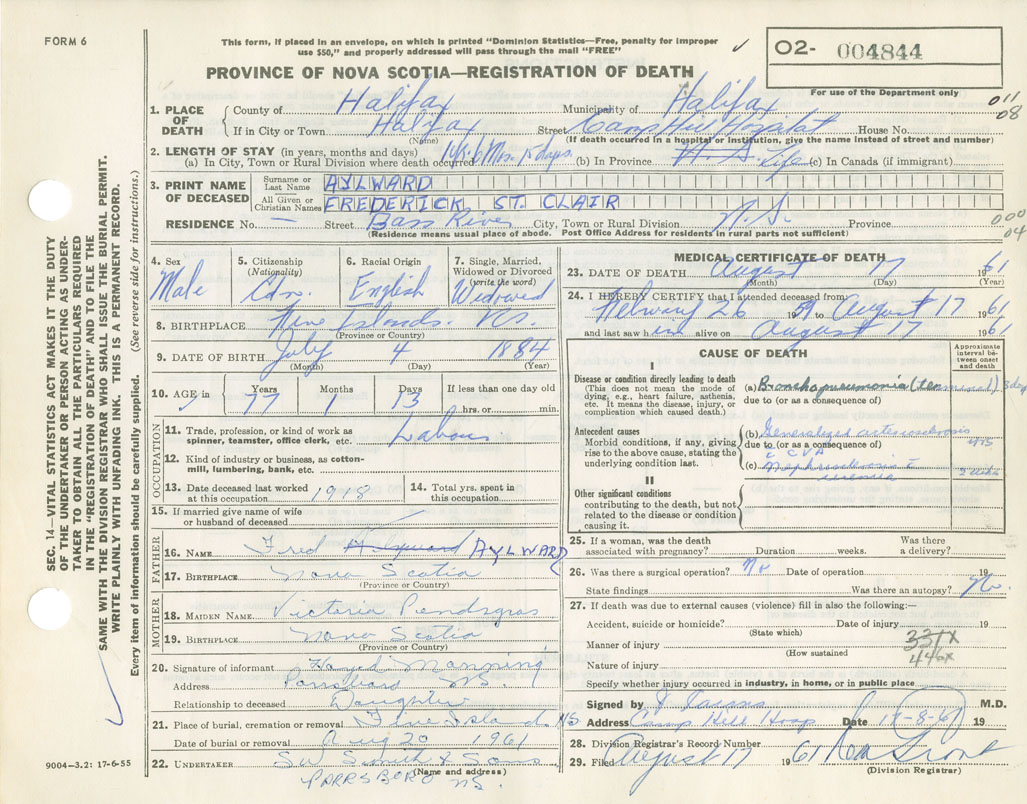 FORM 6
This form, if placed in an envelope, on which is printed "Dominion Statistics—Free, penalty for improper
use $50," and properly addressed will pass through the mail "FREE"
O2- 004844
For use of the Department only
PROVINCE OF NOVA SCOTIA—REGISTRATION OF DEATH
011
08
1. PLACE OF DEATH
County of Halifax Municipality of Halifax
If in City or Town Halifax Street Camp Hill Hospital House No.
(Name) (If death occurred in a hospital or institution, give the name instead of street and number)
2. LENGTH OF STAY (in years, months and days)
(a) In City, Town or Rural Division where death occurred 6 Mos. 15 days (b) In Province Life (c) In Canada (if immigrant)
3. PRINT NAME OF DECEASED
Surname or Last Name AYLWARD
All Given or Christian Names FREDERICK ST. CLAIR
RESIDENCE No. — Street Bass River City, Town or Rural Division N.S. Province
(Residence means usual place of abode. Post Office Address for residents in rural parts not sufficient)
000
04
4. Sex Male
5. Citizenship (Nationality) Cdn.
6. Racial Origin English
7. Single, Married, Widowed or Divorced (write the word) Widowed
8. BIRTHPLACE Five Islands. N.S.
(Province or Country)
9. DATE OF BIRTH July 4 1884
(Month) (Day) (Year)
10. AGE in Years 77 Months 1 Days 13 If less than one day old
hrs. or min.
OCCUPATION
11. Trade, profession, or kind of work as
spinner, teamster, office clerk, etc. Labour
12. Kind of industry or business, as cotton-
mill, lumbering, bank, etc.
13. Date deceased last worked
at this occupation 1918
14. Total yrs. spent in
this occupation
15. If married give name of wife
or husband of deceased
FATHER
16. NAME Fred AYLWARD
17. BIRTHPLACE Nova Scotia
(Province or Country)
MOTHER
18. MAIDEN NAME Victoria Pendsgras
19. BIRTHPLACE Nova Scotia
(Province or Country)
20. Signature of informant Manning
Address Parrsboro NS.
Relationship to deceased Daughter
21. Place of burial, cremation or removal Five Island NS
Date of burial or removal Aug 20 1961
22. UNDERTAKER SW Smith & Sons
(Name and address)
PARRSBORO NS.
MEDICAL CERTIFICATE OF DEATH
23. DATE OF DEATH August 17 1961
(Month) (Day) (Year)
24. I HEREBY CERTIFY that I attended deceased from
26 1959 to August 17 1961
and last saw him alive on August 17 1961
CAUSE OF DEATH
Approximate interval between onset and death
I
Disease or condition directly leading to death
(This does not mean the mode of
dying, e.g., heart failure, asthenia,
etc. It means the disease, injury, or
complication which caused death.)
(a) Bronchopneumonia (terminal) 3 days
due to (or as a consequence of)
Antecedent causes
Morbid conditions, if any, giving
rise to the above cause, stating the
underlying condition last.
(b) Generalized arteriosclerosis
due to (or as a consequence of)
c̄ CVA
(c) Nephrosclerosis c̄
uremia
II
Other significant conditions
contributing to the death, but not
related to the disease or condition
causing it.
25. If a woman, was the death
associated with pregnancy? Duration weeks. Was there
a delivery?
26. Was there a surgical operation? No Date of operation 19
State findings Was there an autopsy? No.
27. If death was due to external causes (violence) fill in also the following:—
Accident, suicide or homicide? Date of injury 19
(State which)
Manner of injury
(How sustained
331X
446X
Nature of injury
Specify whether injury occurred in industry, in home, or in public place
Signed by M.D.
Address Camp Hill Hosp Date 17-8-61 19
28. Division Registrar's Record Number
29. Filed August 17 61
(Division Registrar)
SEC. 14—VITAL STATISTICS ACT MAKES IT THE DUTY
OF THE UNDERTAKER OR PERSON ACTING AS UNDER-
TAKER TO OBTAIN ALL THE PARTICULARS REQUIRED
IN THE "REGISTRATION OF DEATH" AND TO FILE THE
SAME WITH THE DIVISION REGISTRAR WHO SHALL ISSUE THE BURIAL PERMIT.
WRITE PLAINLY WITH UNFADING INK. THIS IS A PERMANENT RECORD.
Every item of information should be carefully supplied. (See reverse side for instructions.)
9004-3.2: 17-6-55